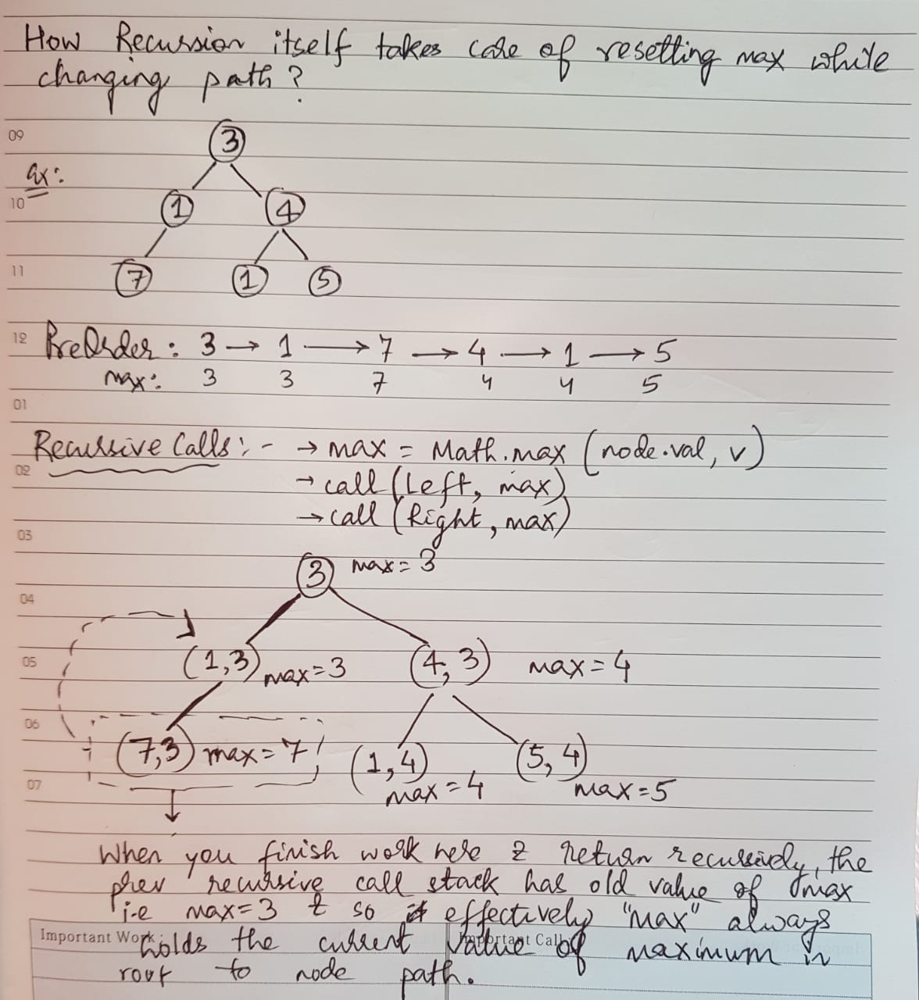 How Recursion itself takes care of resetting max while
changing path?
09
3
ex:
10
1 4
11
7 1 5
12 PreOrder: 3 → 1 → 7 → 4 → 1 → 5
max: 3 3 7 4 4 5
01
Recursive Calls:- → max = Math.max (node.val, v)
02
→ call (Left, max)
→ call (Right, max)
03
3 max = 3
04
05 (1,3) max=3 (4,3) max=4
06
(7,3) max=7 (1,4) (5,4)
07 max=4 max=5
When you finish work here & return recursively, the
prev recursive call stack has old value of max
i.e max=3 & so it effectively "max" always
Important Work Important Call
holds the current value of maximum in
root to node path.